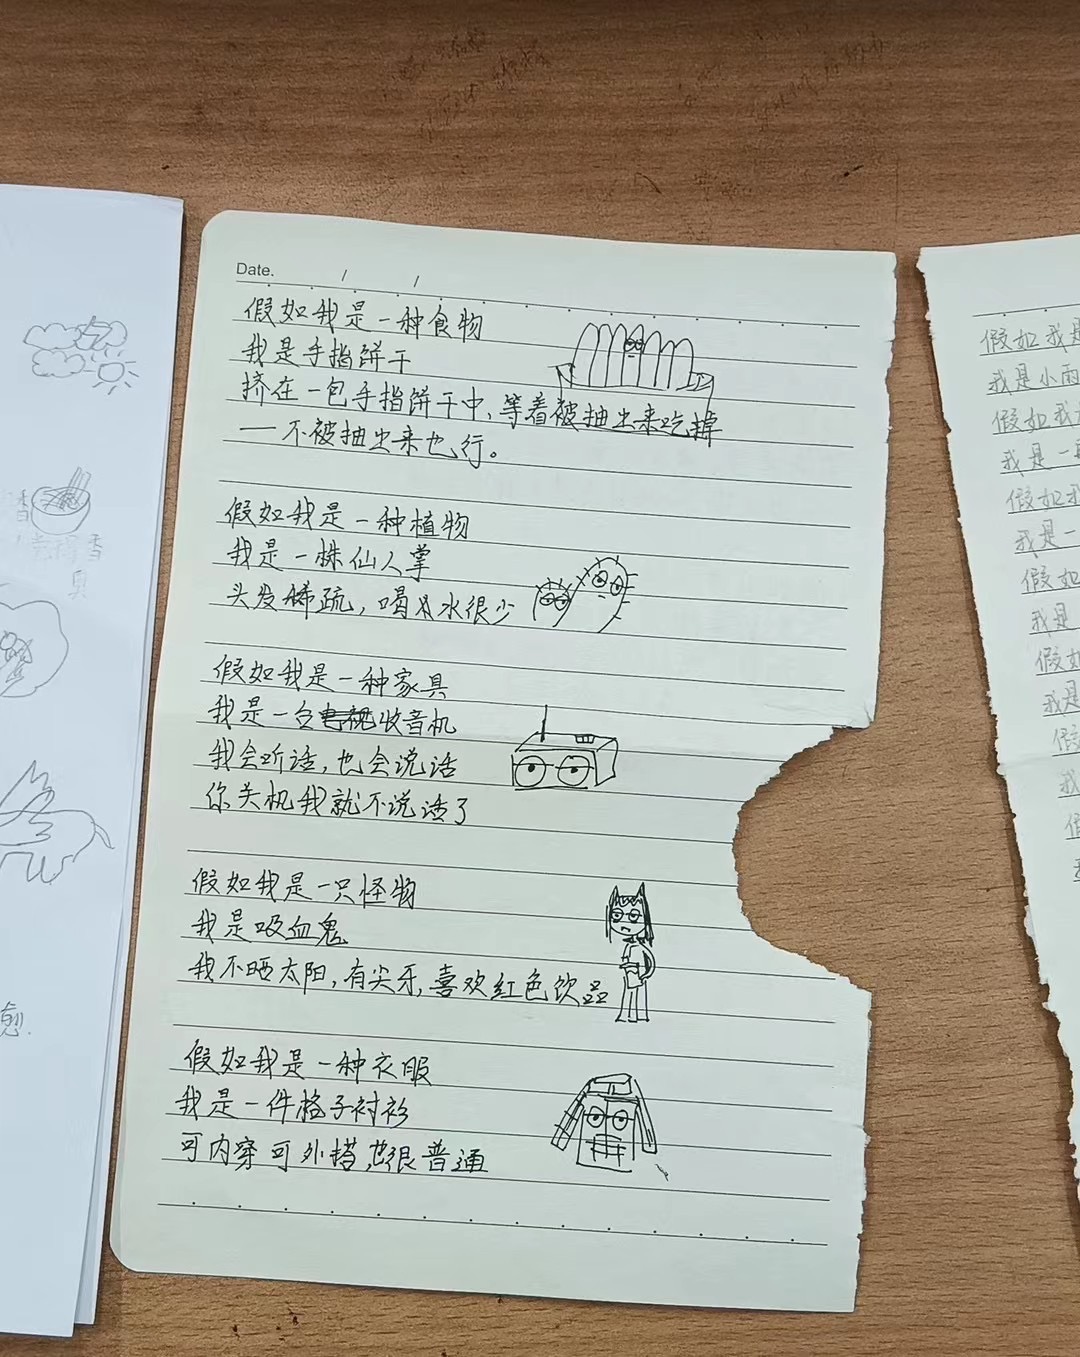 Date. / /
假如我是一种食物
我是手指饼干
挤在一包手指饼干中,等着被抽出来吃掉
——不被抽出来也行。
假如我是一种植物
我是一株仙人掌
头发稀疏,喝水很少
假如我是一种家具
我是一台收音机
我会听话,也会说话
你关机我就不说话了
假如我是一只怪物
我是吸血鬼
我不晒太阳,有尖牙,喜欢红色饮品
假如我是一种衣服
我是一件格子衬衫
可内穿可外搭,也很普通
假如我是
我是小雨
假如我
我是一
假如我
我是一
假如
我是
假如
我是
假
我
假
香
香
臭
愈.